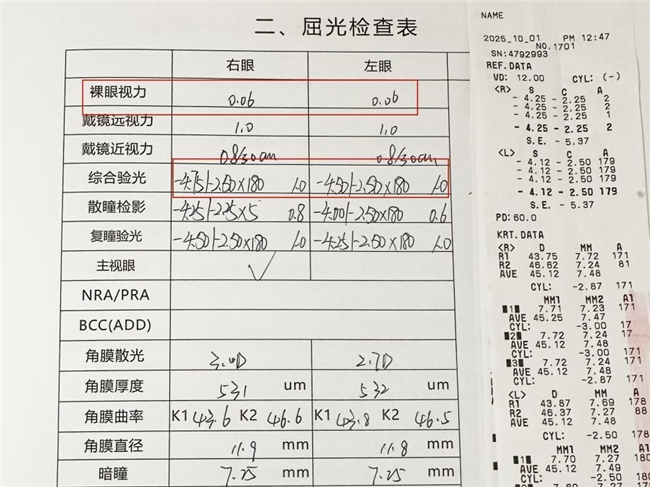 二、屈光检查表
右眼 左眼
裸眼视力 0.06 0.06
戴镜远视力 1.0 1.0
戴镜近视力 0.8/30cm 0.8/30cm
综合验光 -4.75/-2.50×180 1.0 -4.50/-2.50×180 1.0
散瞳检影 -4.25/-2.25×5 0.8 -4.00/-2.50×180 0.6
复瞳验光 -4.50/-2.50×180 1.0 -4.25/-2.50×180 1.0
主视眼
NRA/PRA
BCC(ADD)
角膜散光 3.0D 2.7D
角膜厚度 531 um 532 um
角膜曲率 K1 43.6 K2 46.6 K1 43.8 K2 46.5
角膜直径 11.9 mm 11.8 mm
暗瞳 7.25 mm 7.25 mm
NAME
2025_10_01 PM 12:47
NO.1701
SN:4792993
REF.DATA
VD: 12.00 CYL: (-)
<R> S C A
- 4.25 - 2.25 2
- 4.25 - 2.25 2
- 4.25 - 2.25 1
- 4.25 - 2.25 2
S.E. - 5.37
<L> S C A
- 4.12 - 2.50 179
- 4.12 - 2.50 179
- 4.12 - 2.50 179
- 4.12 - 2.50 179
S.E. - 5.37
PD: 60.0
KRT.DATA
<R> D MM A
R1 43.75 7.72 171
R2 46.62 7.24 81
AVE 45.12 7.48
CYL: -2.87 171
MM1 MM2 A1
1 7.71 7.23 171
AVE 45.25 7.47
CYL: -3.00 17
2 7.72 7.24 17
AVE 45.12 7.48
CYL: -2.87 171
3 7.72 7.24 171
AVE 45.12 7.48
CYL: -2.87 171
<L> D MM A
R1 43.87 7.69 178
R2 46.37 7.27 88
AVE 45.12 7.48
CYL: -2.50 178
MM1 MM2 A1
1 7.70 7.27 180
AVE 45.12 7.49
CYL: -2.50 180